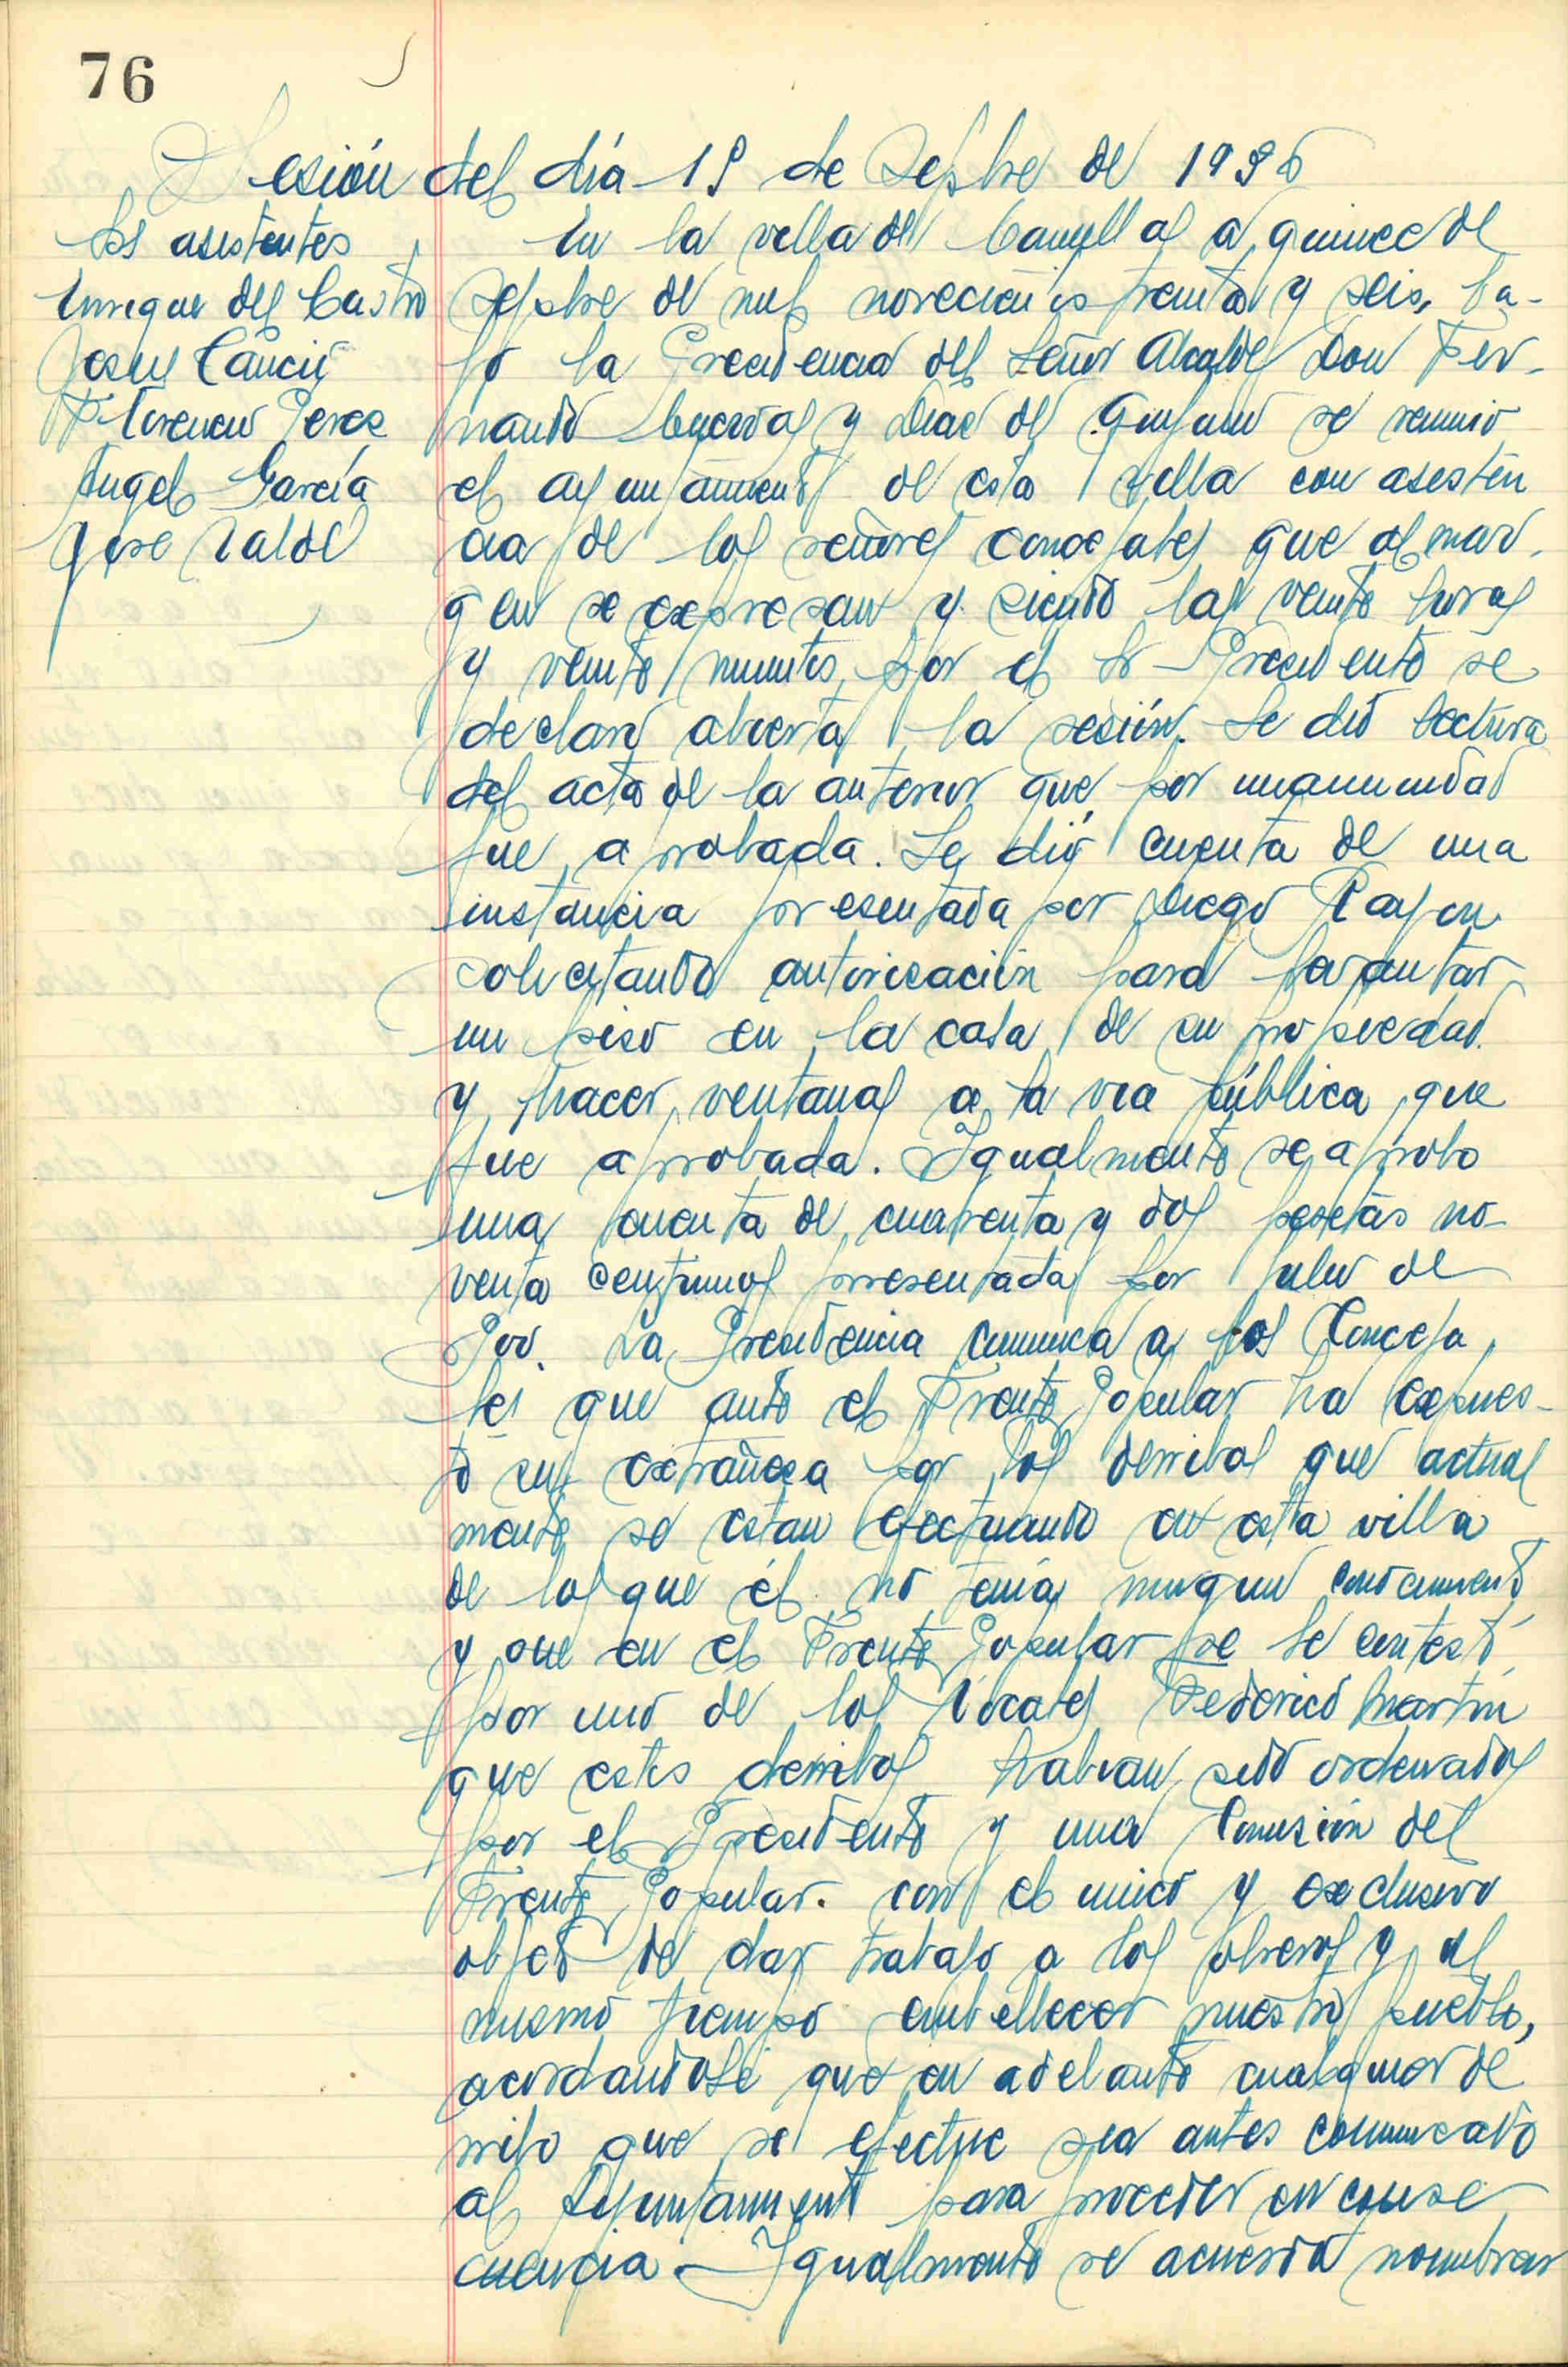 76
Sesión del día 15 de Sepbre de 1936
Srs asistentes
Enrique del Castro
Jesus Cancio
Florencio Perez
Angel García
Jose Valde
En la villa del a quince de
Sepbre de mil novecientos treinta y seis, ba-
jo la Presidencia del Señor Alcalde Don Fer-
nando y Diaz de se reunio
el ayuntamiento de esta villa con asisten
cia de los señores concejales que al mar-
gen se expresan y siendo las veinte horas
y veinte minutos, por el Sr Presidente se
declaró abierta la sesión. Se dió lectura
del acta de la anterior que por unanimidad
fue aprobada. Se dió cuenta de una
instancia presentada por Diego Payon
solicitando autorización para levantar
un piso en la casa de su propiedad
y hacer ventanas a la via pública, que
fue aprobada. Igualmente se aprobo
una cuenta de cuarenta y dos pesetas no-
venta centimos presentada por Julio de
La Presidencia comunica a los Conceja
les que ante el Frente Popular ha expues-
to su extrañeza por los derribos que actual
mente se estan efectuando en esta villa
de los que él no tenía ningun conocimiento
y que en el Frente Popular se le contestó
por uno de los Vocales Federico Martín
que estos derribos habian sido ordenados
por el Presidente y una Comisión del
Frente Popular. con el unico y exclusivo
objeto de dar trabajo a los obreros y al
mismo tiempo embellecer nuestro pueblo,
acordandose que en adelante cualquier de
rribo que se efectue sea antes comunicado
al Ayuntamiento para proceder en conse
cuencia. Igualmente se acuerda nombrar